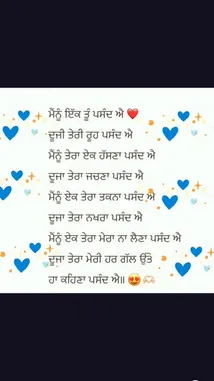 ਮੈਂਨੂੰ ਇੱਕ ਤੂੰ ਪਸੰਦ ਐ ❤️
ਦੂਜੀ ਤੇਰੀ ਰੂਹ ਪਸੰਦ ਐ
ਮੈਂਨੂੰ ਤੇਰਾ ਏਕ ਹੱਸਣਾ ਪਸੰਦ ਐ
ਦੂਜਾ ਤੇਰਾ ਜਚਣਾ ਪਸੰਦ ਐ
ਮੈਂਨੂੰ ਏਕ ਤੇਰਾ ਤਕਨਾ ਪਸੰਦ ਐ
ਦੂਜਾ ਤੇਰਾ ਨਖਰਾ ਪਸੰਦ ਐ
ਮੈਂਨੂੰ ਏਕ ਤੇਰਾ ਮੇਰਾ ਨਾ ਲੈਣਾ ਪਸੰਦ ਐ
ਦੂਜਾ ਤੇਰਾ ਮੇਰੀ ਹਰ ਗੱਲ ਉੱਤੇ
ਹਾ ਕਹਿਣਾ ਪਸੰਦ ਐ॥ 😍🫶🏻